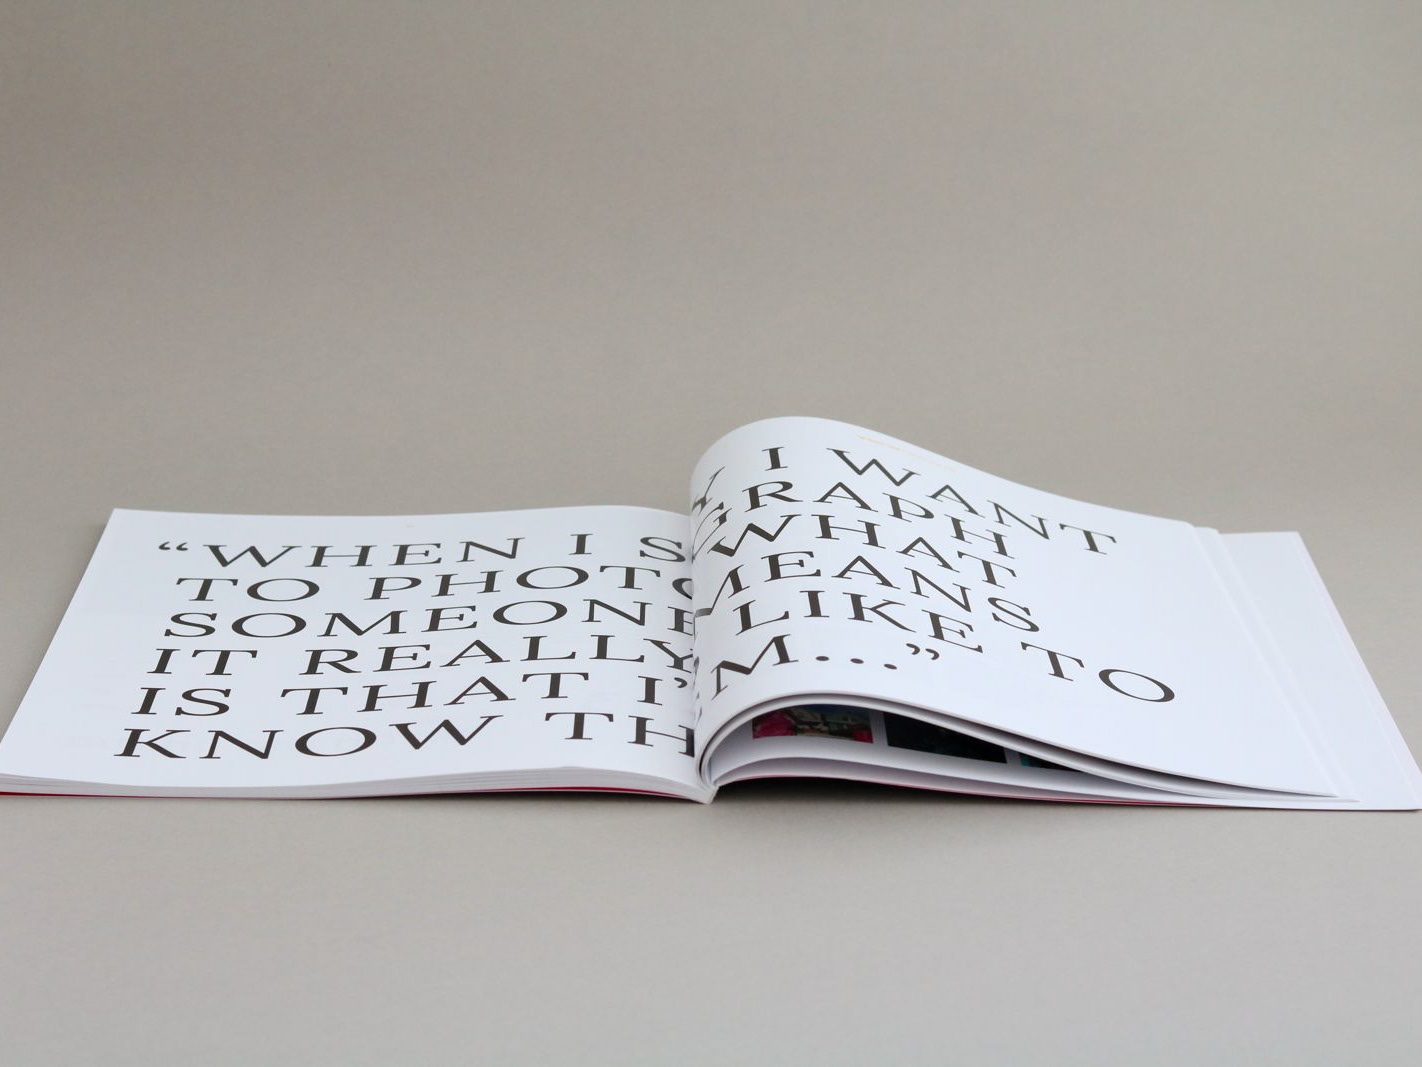 “WHEN I SAY I WANT
TO PHOTOGRAPH
SOMEONE WHAT
IT REALLY MEANS
IS THAT I’D LIKE TO
KNOW THEM...”